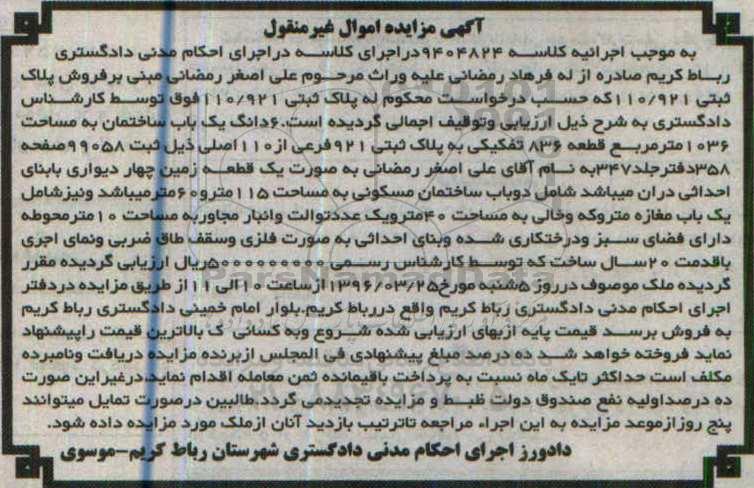 آگهی مزایده اموال غیرمنقول
به موجب اجرائیه کلاسه ۹۴۰۴۸۲۴دراجرای کلاسه دراجرای احکام مدنی دادگستری
رباط کریم صادره از له فرهاد رمضانی علیه وراث مرحوم علی اصغر رمضانی مبنی برفروش پلاک
ثبتی ۱۱۰/۹۲۱که حسب درخواست محکوم له پلاک ثبتی ۱۱۰/۹۲۱فوق توسط کارشناس
دادگستری به شرح ذیل ارزیابی وتوقیف اجمالی گردیده است.۶دانگ یک باب ساختمان به مساحت
۱۰۳۶مترمربع قطعه ۸۳۶ تفکیکی به پلاک ثبتی ۹۲۱فرعی از۱۱۰اصلی ذیل ثبت ۹۹۰۵۸صفحه
۳۵۸دفترجلد۳۴۷به نام آقای علی اصغر رمضانی به صورت یک قطعه زمین چهار دیواری بابنای
احداثی دران میباشد شامل دوباب ساختمان مسکونی به مساحت ۱۱۵مترو۶۰مترمیباشد ونیزشامل
یک باب مغازه متروکه وخالی به مساحت ۴۰مترویک عددتوالت وانبار مجاوربه مساحت ۱۰مترمحوطه
دارای فضای سبز ودرختکاری شده وبنای احداثی به صورت فلزی وسقف طاق ضربی ونمای اجری
باقدمت ۲۰سال ساخت که توسط کارشناس رسمی ریال ارزیابی گردیده مقرر
گردیده ملک موصوف درروز ۵شنبه مورخ۱۳۹۶/۰۳/۲۵ازساعت ۱۰الی ۱۱از طریق مزایده دردفتر
اجرای احکام مدنی دادگستری رباط کریم واقع دررباط کریم.بلوار امام خمینی دادگستری رباط کریم
به فروش برسد قیمت پایه ازبهای ارزیابی شده شروع وبه کسانی ک بالاترین قیمت راپیشنهاد
نماید فروخته خواهد شد ده درصد مبلغ پیشنهادی فی المجلس ازبرنده مزایده دریافت ونامبرده
مکلف است حداکثر تایک ماه نسبت به پرداخت باقیمانده ثمن معامله اقدام نماید.درغیراین صورت
ده درصداولیه نفع صندوق دولت ظبط و مزایده تجدیدمی گردد.طالبین درصورت تمایل میتوانند
پنج روزازموعد مزایده به این اجراء مراجعه تاترتیب بازدید آنان ازملک مورد مزایده داده شود.
دادورز اجرای احکام مدنی دادگستری شهرستان رباط کریم-موسوی
ParsNamadData